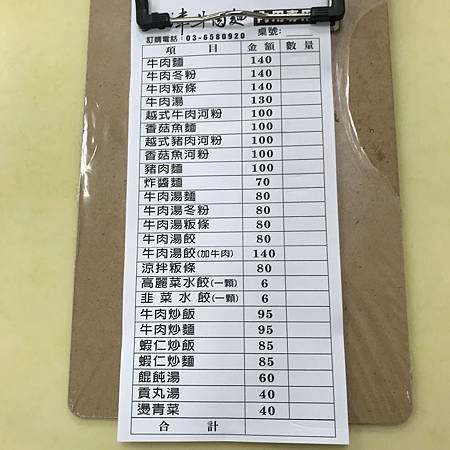 訂購電話：03-6580920 桌號：
項目 金額 數量
牛肉麵 140
牛肉冬粉 140
牛肉粄條 140
牛肉湯 130
越式牛肉河粉 100
香菇魚麵 100
越式豬肉河粉 100
香菇魚河粉 100
豬肉麵 100
炸醬麵 70
牛肉湯麵 80
牛肉湯冬粉 80
牛肉湯粄條 80
牛肉湯餃 80
牛肉湯餃(加牛肉) 140
涼拌粄條 80
高麗菜水餃(一顆) 6
韭菜水餃(一顆) 6
牛肉炒飯 95
牛肉炒麵 95
蝦仁炒飯 85
蝦仁炒麵 85
餛飩湯 60
貢丸湯 40
燙青菜 40
合計